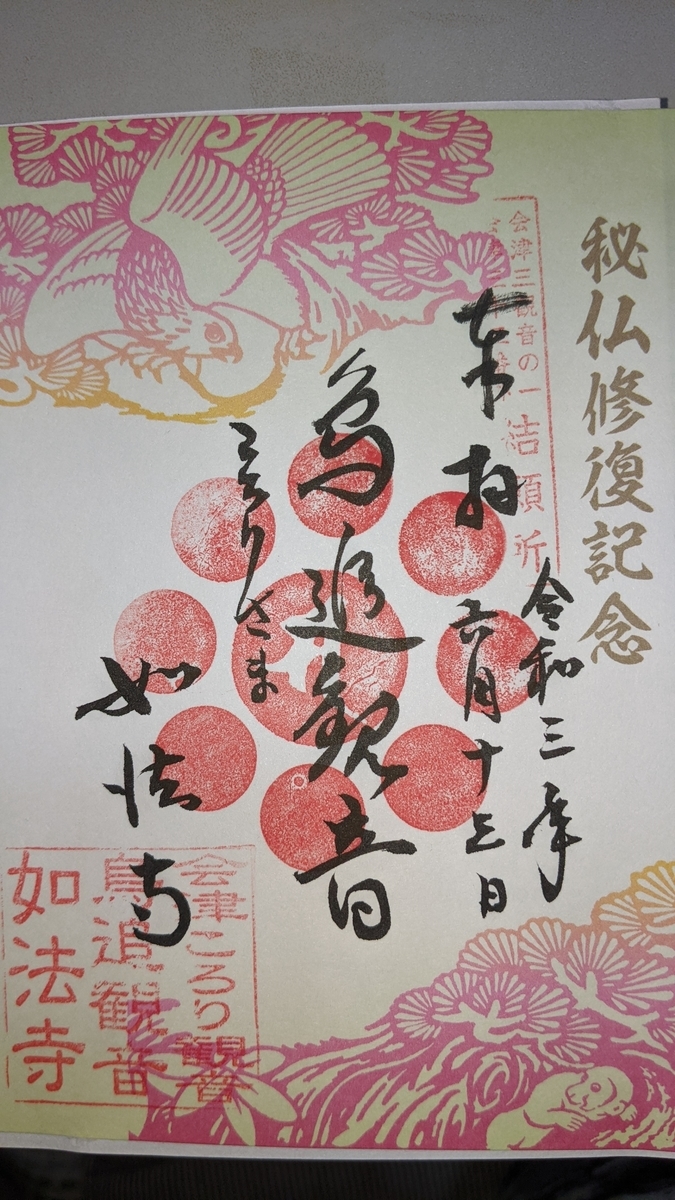 秘仏修復記念
会津三観音の一
結願所
奉拝
令和三年
六月十三日
鳥追観音
ころりさま
如法寺
会津ころり観音
鳥追観音
如法寺